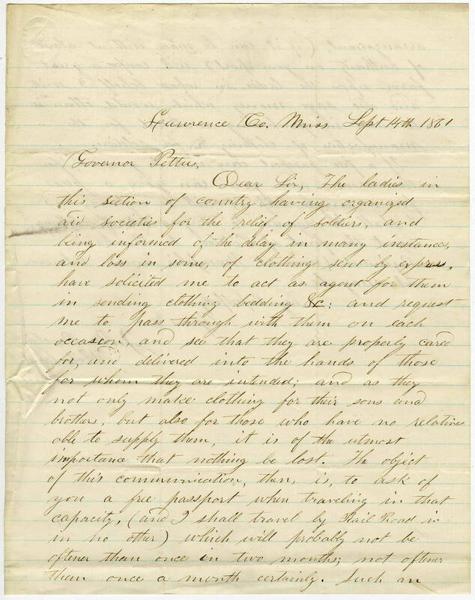 Lawrence Co. Miss Sept 14th 1861
Governor Pettus,
Dear Sir, The ladies in
this section of country having organized
aid societies for the relief of soldiers, and
being informed of the delay in many instances,
and loss in some, of clothing sent by express,
have solicited me to act as agent for them
in sending clothing bedding &c: and request
me to pass through with them on each
occasion, and see that they are properly cared
for, and delivered into the hands of those
for whom they are intended; and as they
not only make clothing for their sons and
brothers, but also for those who have no relatives
able to supply them, it is of the utmost
importance that nothing be lost. The object
of this communication, then, is, to ask of
you a free passport when traveling in that
capacity, (and I shall travel by Rail Road in
in no other) which will probably not be
oftener than once in two months; not oftener
than once a month certainly. Such an